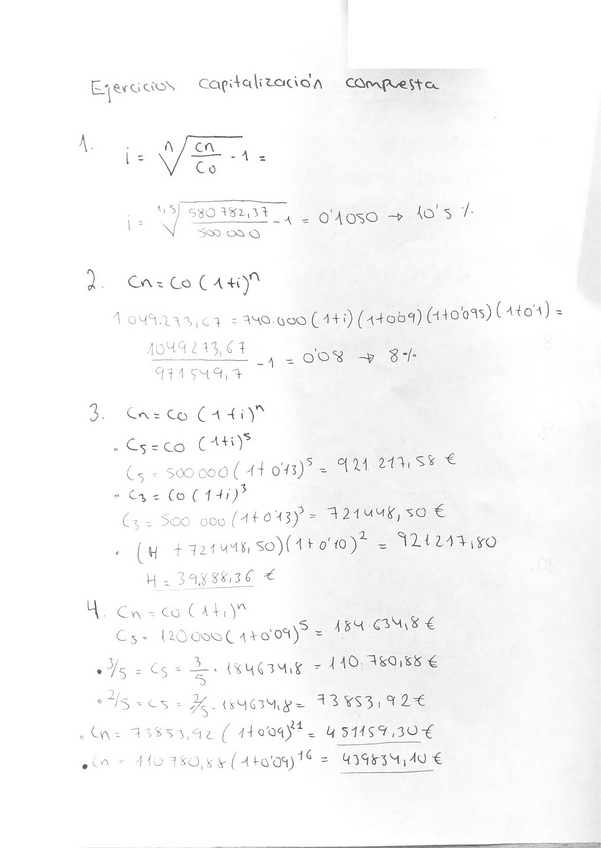 Ejercicios capitalización compuesta
1. i = ⁿ√(Cn/Co) -1 =
i = ¹'⁵√(580 782,37/500 000) -1 = 0'1050 → 10'5 %
2. Cn = Co (1+i)ⁿ
1 049.273,67 = 740.000 (1+i) (1+0'09) (1+0'095) (1+0'1) =
1049273,67/971549,7 -1 = 0'08 → 8%
3. Cn = Co (1+i)ⁿ
• C5 = Co (1+i)⁵
C5 = 500 000 (1+0'13)⁵ = 921.217,58 €
• C3 = Co (1+i)³
C3 = 500.000 (1+0'13)³ = 721448,50 €
• (H + 721448,50) (1+0'10)² = 921217,80
H = 39.888,36 €
4. Cn = Co (1+i)ⁿ
C5 = 120000 (1+0'09)⁵ = 184.634,8 €
• 3/5 = C5 = 3/5 · 184634,8 = 110.780,88 €
• 2/5 = C5 = 2/5 · 184634,8 = 73853,92 €
• Cn = 73853,92 (1+0'09)²¹ = 451159,30 €
• Cn = 110780,88 (1+0'09)¹⁶ = 439834,10 €